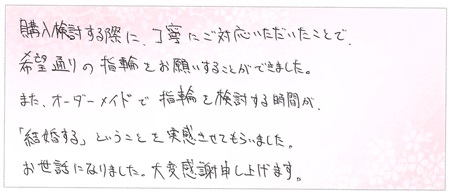 購入検討する際に、丁寧にご対応いただいたことで、
希望通りの指輪をお願いすることができました。
また、オーダーメイドで指輪を検討する時間が、
「結婚する」ということを実感させてもらいました。
お世話になりました。大変感謝申し上げます。